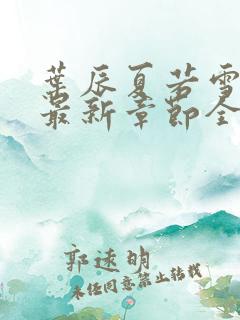 葉辰夏若雪
最新章節全
郭遠明
未经同意禁止转载